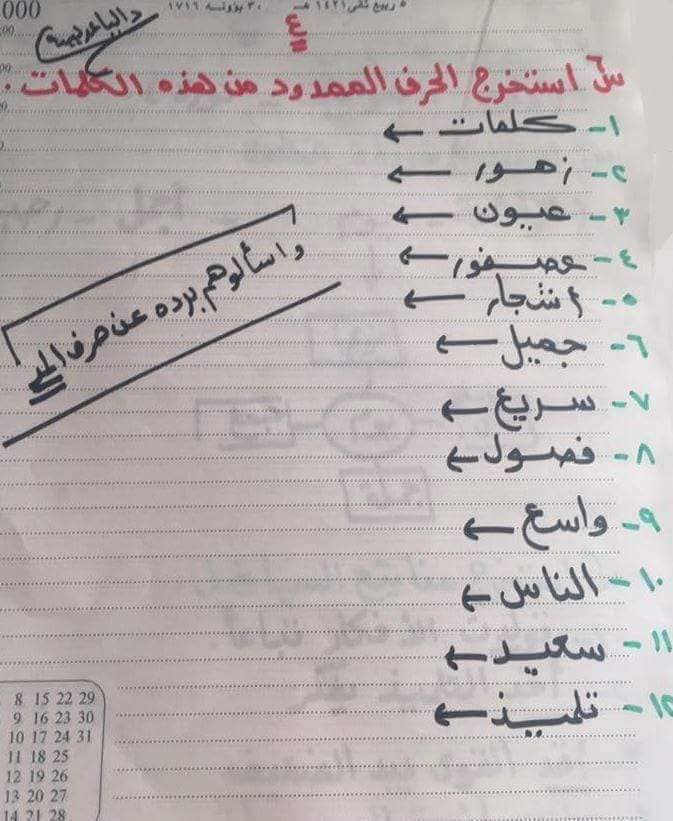 000
٥ ربيع ثاني ١٤٢١ هـ ٣٠ بؤونه ١٧١٦
٤
س٦ استخرج الحرف الممدود من هذه الكلمات.
١- كلمات ←
٢- زهور ←
٣- عيون ←
٤- عصفور ←
٥- أشجار ←
٦- جميل ←
٧- سريع ←
٨- فصول ←
٩- واسع ←
١٠- الناس ←
١١- سعيد ←
١٢- تلميذ ←
واسألوهم برده عن حرف المد
8 15 22 29
9 16 23 30
10 17 24 31
11 18 25
12 19 26
13 20 27
14 21 28